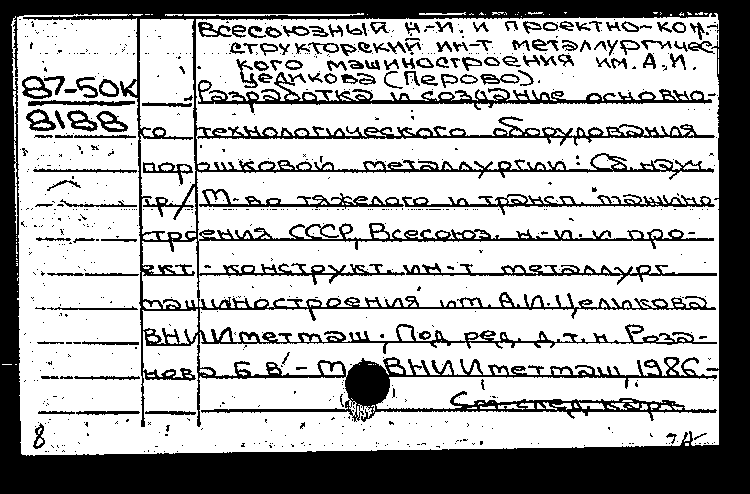 Всесоюзный н.-и. и проектно-кон-
структорский ин-т металлургичес-
кого машиностроения им. А.И.
Целикова (Перово).
87-50К
Разработка и создание основно-
8188
го технологического оборудования
порошковой металлургии: Сб. науч.
тр. / М-во тяжелого и трансп. машино-
строения СССР, Всесоюз. н.-и. и про-
ект.-конструкт. ин-т металлург.
машиностроения им. А.И. Целикова
ВНИИметмаш. Под ред. д.т.н. Роза-
нова Б.В. - М.: ВНИИметмаш, 1986.-
См. след. карт.
8